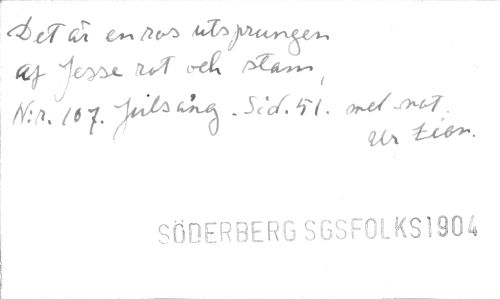 Det är en ros utsprungen
af Jesse rot och stam,
N:r. 107. Julsång. Sid. 51. med not.
Ur Zion.
SÖDERBERG SGSFOLKS1904